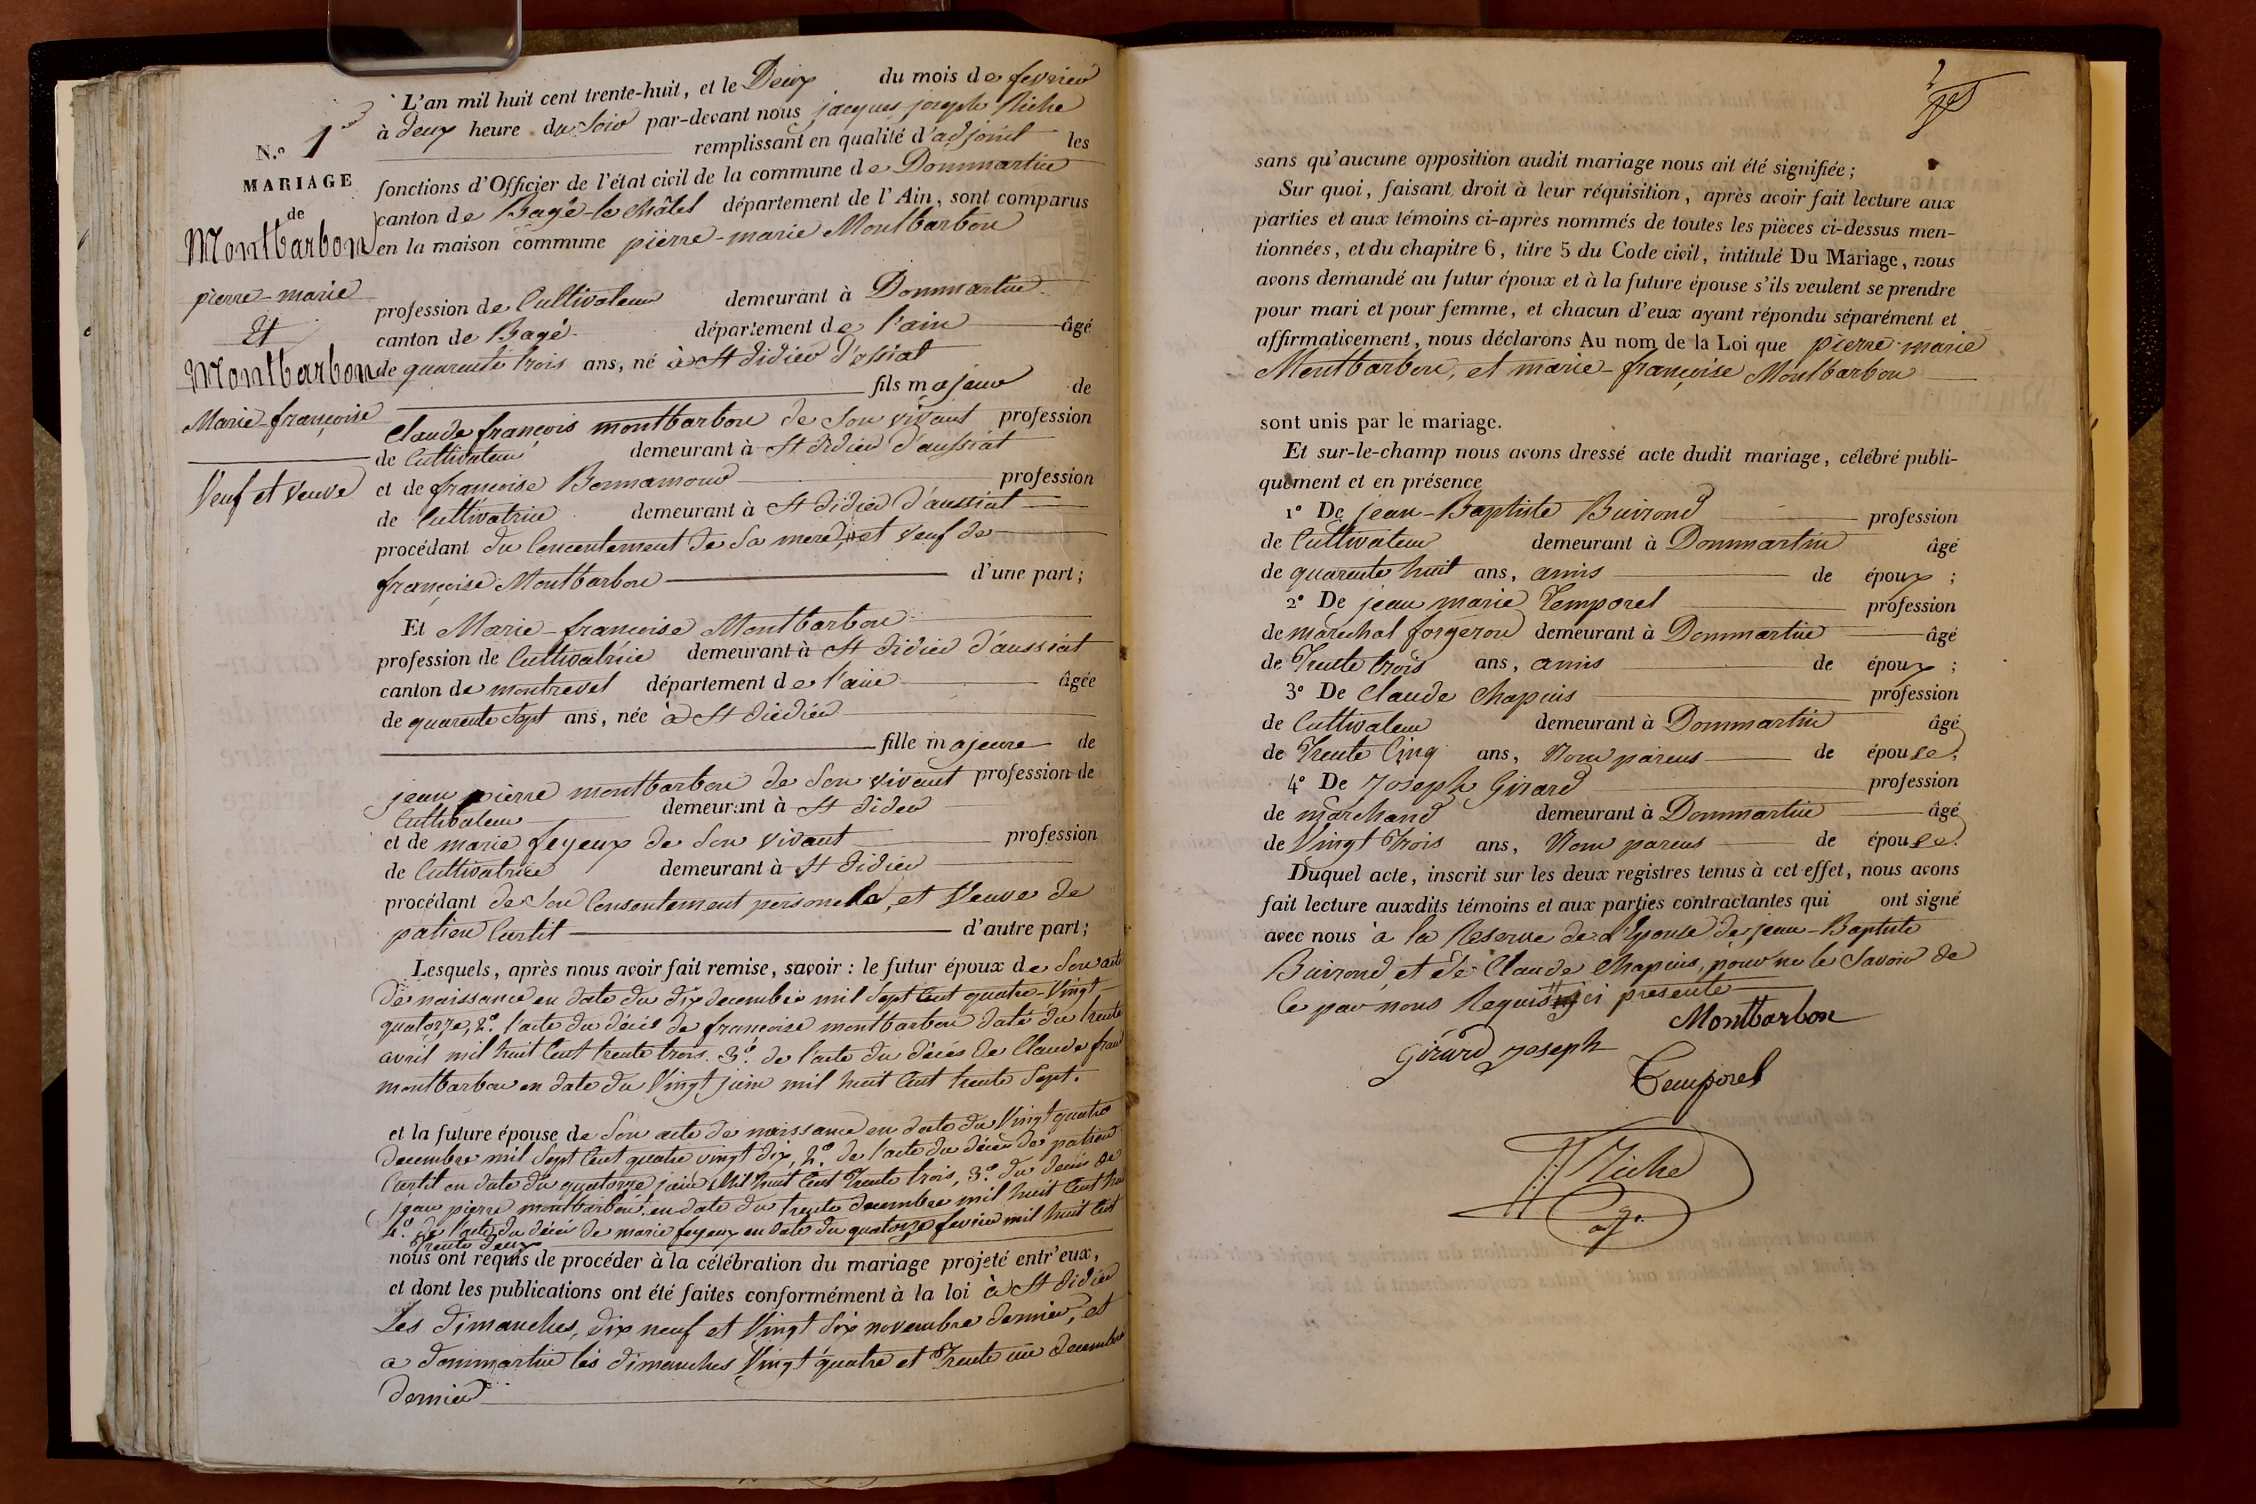 N.o 1er
MARIAGE
de
Montbarbon
pierre-marie
Et
Montbarbon
Marie-françoise
Veuf et veuve
L'an mil huit cent trente-huit, et le Deux du mois de fevrier
à deux heure du Soir par-devant nous jacques joseph Niche
remplissant en qualité d'adjoint les
fonctions d'Officier de l'état civil de la commune de Dommartin
canton de Bagé-le Châtel département de l'Ain, sont comparus
en la maison commune pierre-marie Montbarbon
profession de Cultivateur demeurant à Dommartin
canton de Bagé département de l'ain âgé
de quarente trois ans, né à St didier d'ossiat
fils majeur de
Claude françois montbarbon de son vivant profession
de Cultivateur demeurant à St didier d'aussiat
et de françoise Bonnamour profession
de Cultivatrice demeurant à St didier d'aussiat
procédant du Concentement de Sa mere, et veuf de
françoise Montbarbon d'une part;
Et Marie-françoise Montbarbon
profession de Cultivatrice demeurant à St didier d'aussiat
canton de montrevel département de l'ain âgée
de quarente Sept ans, née à St didier
fille majeure de
jean pierre montbarbon de Son vivant profession de
Cultivateur demeurant à St didier
et de marie feyeux de Son vivant profession
de Cultivatrice demeurant à St didier
procédant de Son Consentement personel, et Veuve de
patien Curtit d'autre part;
Lesquels, après nous avoir fait remise, savoir: le futur époux de Son acte
de naissance en date du dix decembre mil Sept Cent quatre-Vingt
quatorze, 2.o l'acte du décés de françoise montbarbon daté du trente
avril mil huit Cent trente trois. 3.o de l'acte du décés de Claude fran
montbarbon en date du Vingt juin mil huit Cent trente Sept.
et la future épouse de Son acte de naissance en date du Vingt quatre
decembre mil Sept Cent quatre vingt dix, 2.o de l'acte du décés de patien
Curtit en date du quatorze juin Mil huit Cent Trente trois, 3.o du decés de
jean pierre montbarbon en date du trente decembre mil huit Cent
4.o de l'acte du décés de marie feyeux en date du quatorze fevrier mil huit Cent
Trente deux
nous ont requis de procéder à la célébration du mariage projeté entr'eux,
et dont les publications ont été faites conformément à la loi à St didier
Les dimanches, dix neuf et Vingt Six novembre dernier, et
a dommartin les dimanches Vingt quatre et Trente un decembre
dernier
sans qu'aucune opposition audit mariage nous ait été signifiée;
Sur quoi, faisant droit à leur réquisition, après avoir fait lecture aux
parties et aux témoins ci-après nommés de toutes les pièces ci-dessus men-
tionnées, et du chapitre 6, titre 5 du Code civil, intitulé Du Mariage, nous
avons demandé au futur époux et à la future épouse s'ils veulent se prendre
pour mari et pour femme, et chacun d'eux ayant répondu séparément et
affirmativement, nous déclarons Au nom de la Loi que pierre marie
Montbarbon, et marie-françoise Montbarbon
sont unis par le mariage.
Et sur-le-champ nous avons dressé acte dudit mariage, célébré publi-
quement et en présence
1o De jean-Baptiste Buirond profession
de Cultivateur demeurant à Dommartin âgé
de quarente huit ans, amis de époux;
2o De jean marie Temporel profession
de maréchal forgeron demeurant à Dommartin âgé
de Trente trois ans, amis de époux;
3o De Claude Chapuis profession
de Cultivateur demeurant à Dommartin âgé
de Trente Cinq ans, Non parens de épouse;
4o De Joseph Girard profession
de marchand demeurant à Dommartin âgé
de Vingt Trois ans, Non parens de épouse.
Duquel acte, inscrit sur les deux registres tenus à cet effet, nous avons
fait lecture auxdits témoins et aux parties contractantes qui ont signé
avec nous à la Reserve de l'Epouse de jean-Baptiste
Buirond, et de Claude Chapuis, pour ne le Savoir de
Ce par nous Requis ici presente
Montbarbon
Girard Joseph
Temporel
Niche
adj.